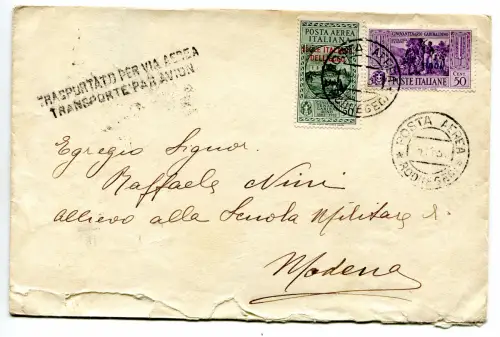 TRASPORTATO PER VIA AEREA
TRANSPORTÉ PAR AVION
POSTA AEREA
ITALIANA
CINQUANTENARIO GARIBALDINO
POSTE ITALIANE
CENT
50
POSTA AEREA
RODI (EGEO)
POSTA AEREA
RODI (EGEO)
Egregio Signor
Raffaele Nini
allievo alla Scuola Militare di
Modena